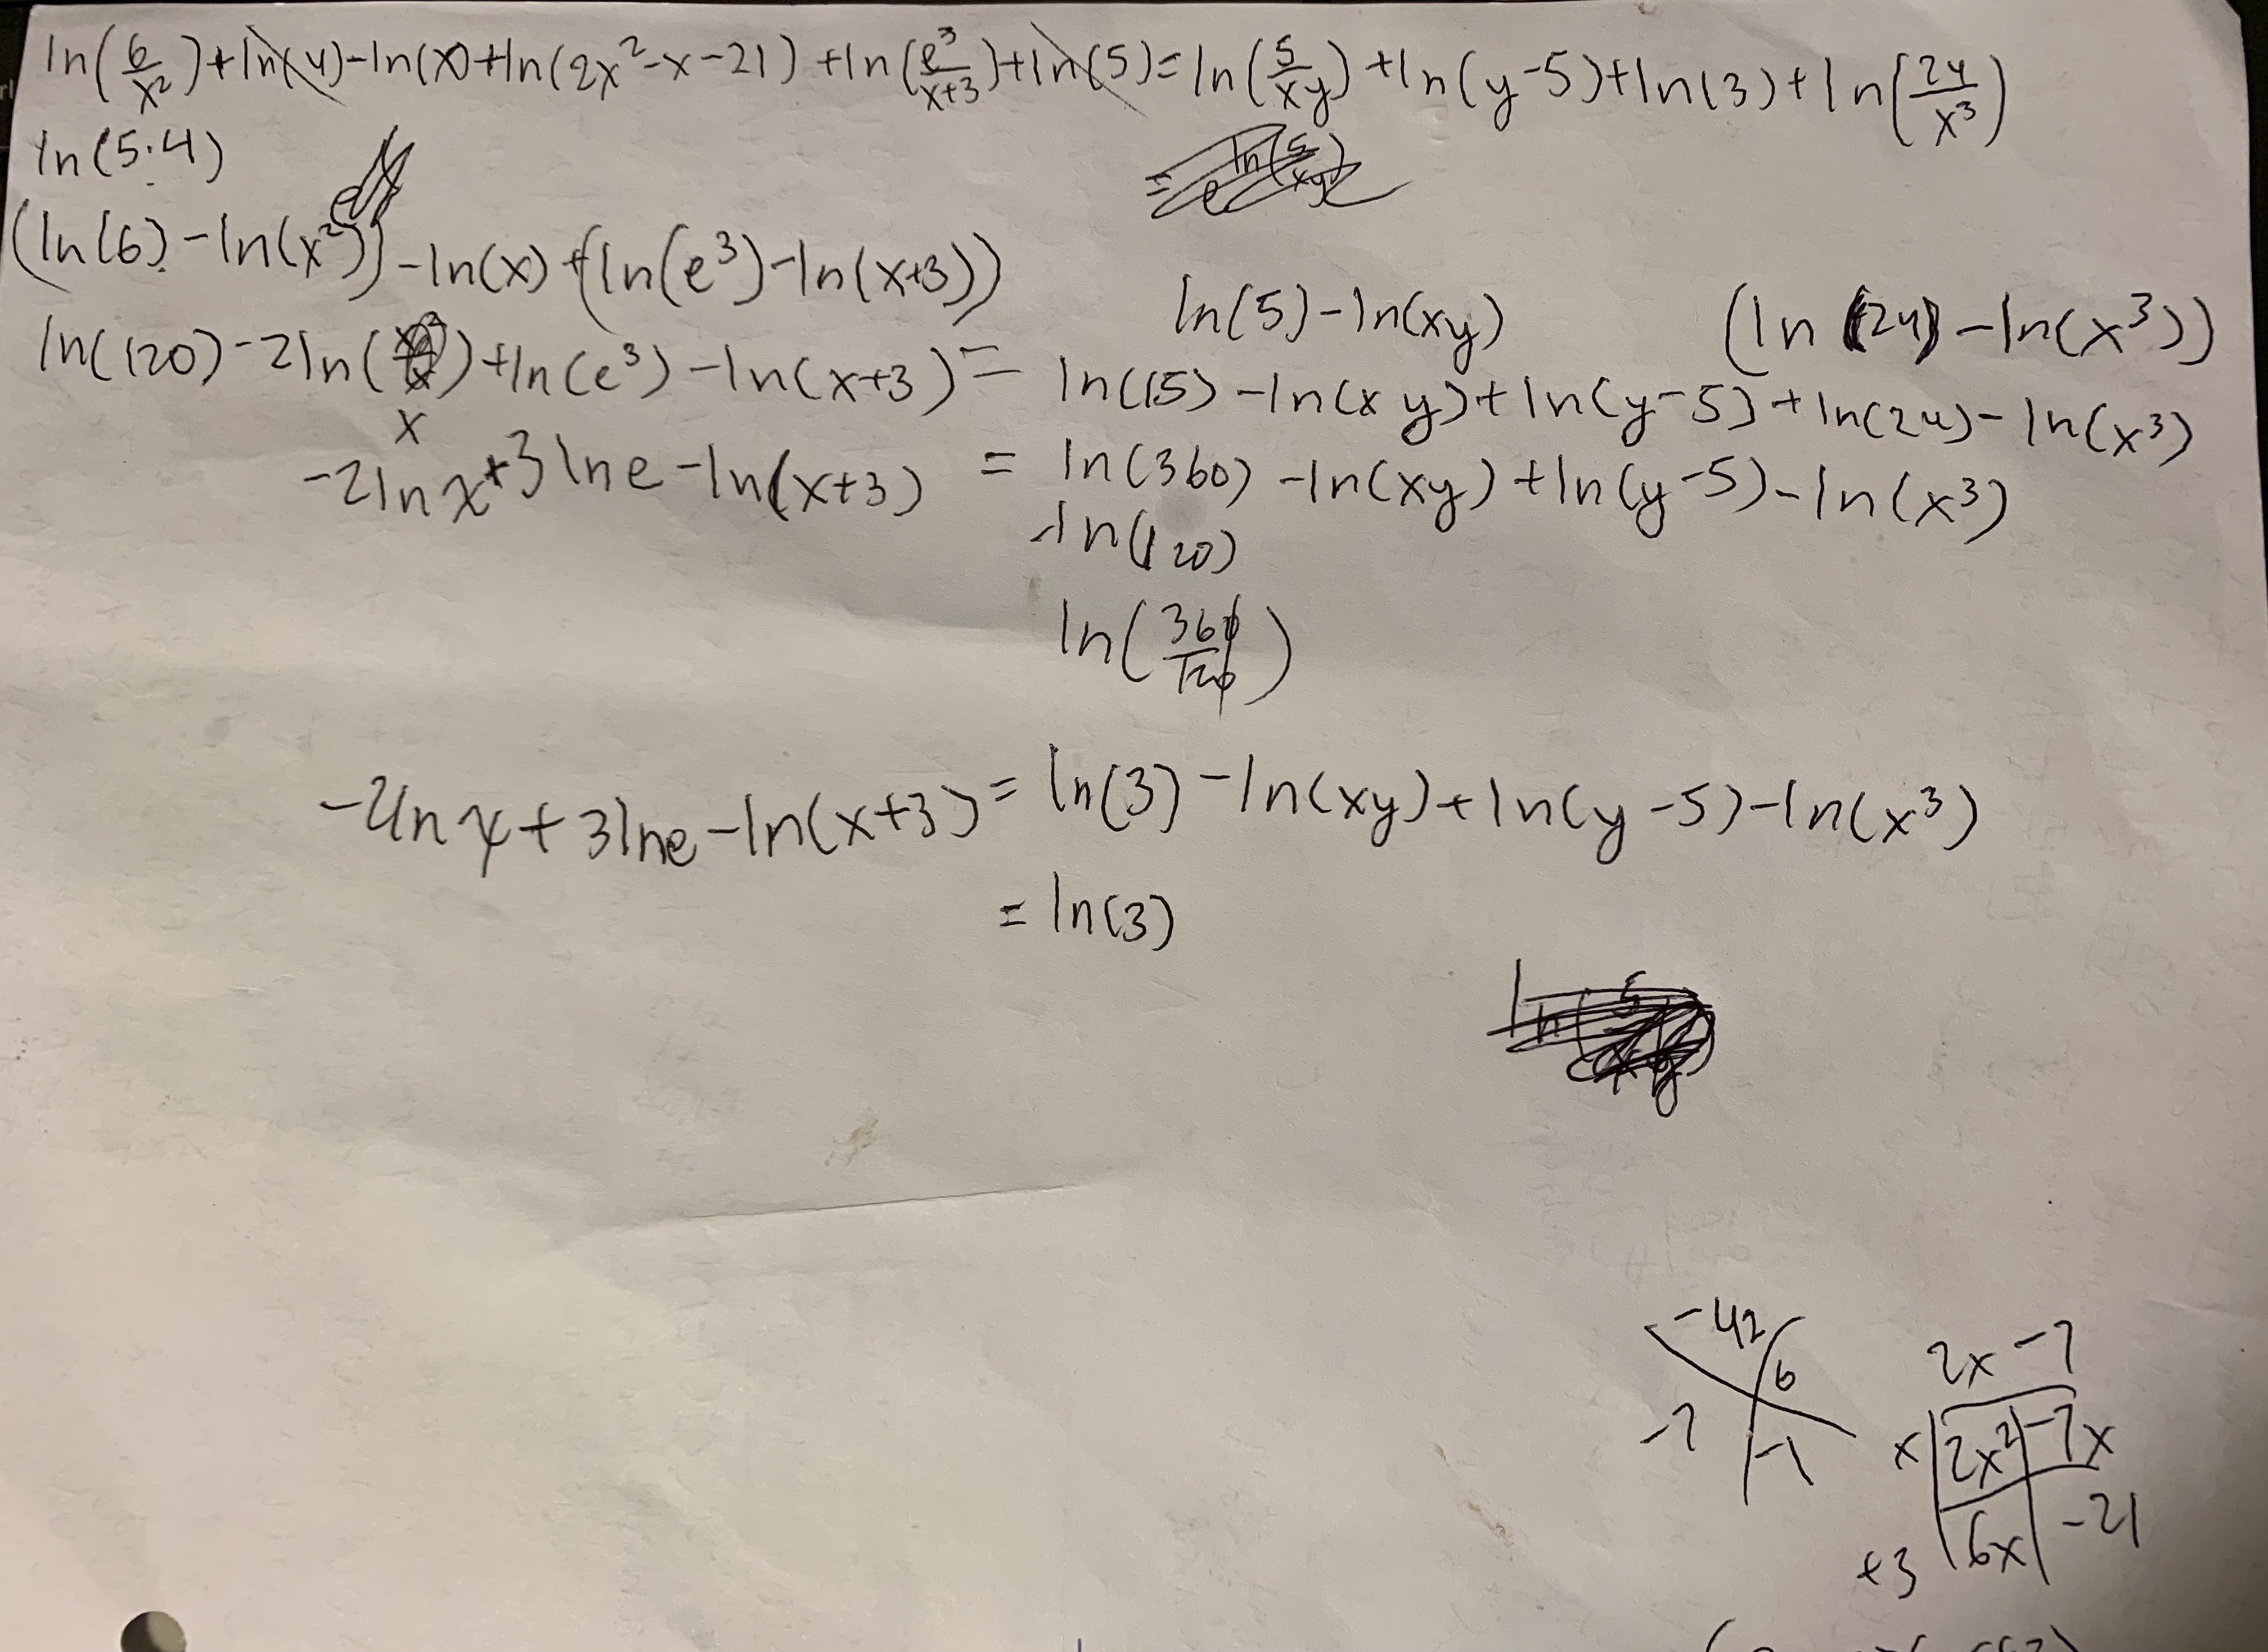 ln(6/x²)+ln(4)-ln(x)+ln(2x²-x-21)+ln(e³/x+3)+ln(5)=ln(5/xy)+ln(y-5)+ln(3)+ln(24/x³)
ln(5·4)
(ln(6)-ln(x²))-ln(x)+(ln(e³)-ln(x+3))
ln(5)-ln(xy) (ln(24)-ln(x³))
ln(120)-2ln( )+ln(e³)-ln(x+3)= ln(15)-ln(xy)+ln(y-5)+ln(24)-ln(x³)
x
-2lnx+3lne-ln(x+3) = ln(360)-ln(xy)+ln(y-5)-ln(x³)
-ln(120)
ln(360/120)
-2lnx+3lne-ln(x+3)=ln(3)-ln(xy)+ln(y-5)-ln(x³)
=ln(3)
-42
6
-7
-1
2x-7
x 2x² -7x
+3 6x -21